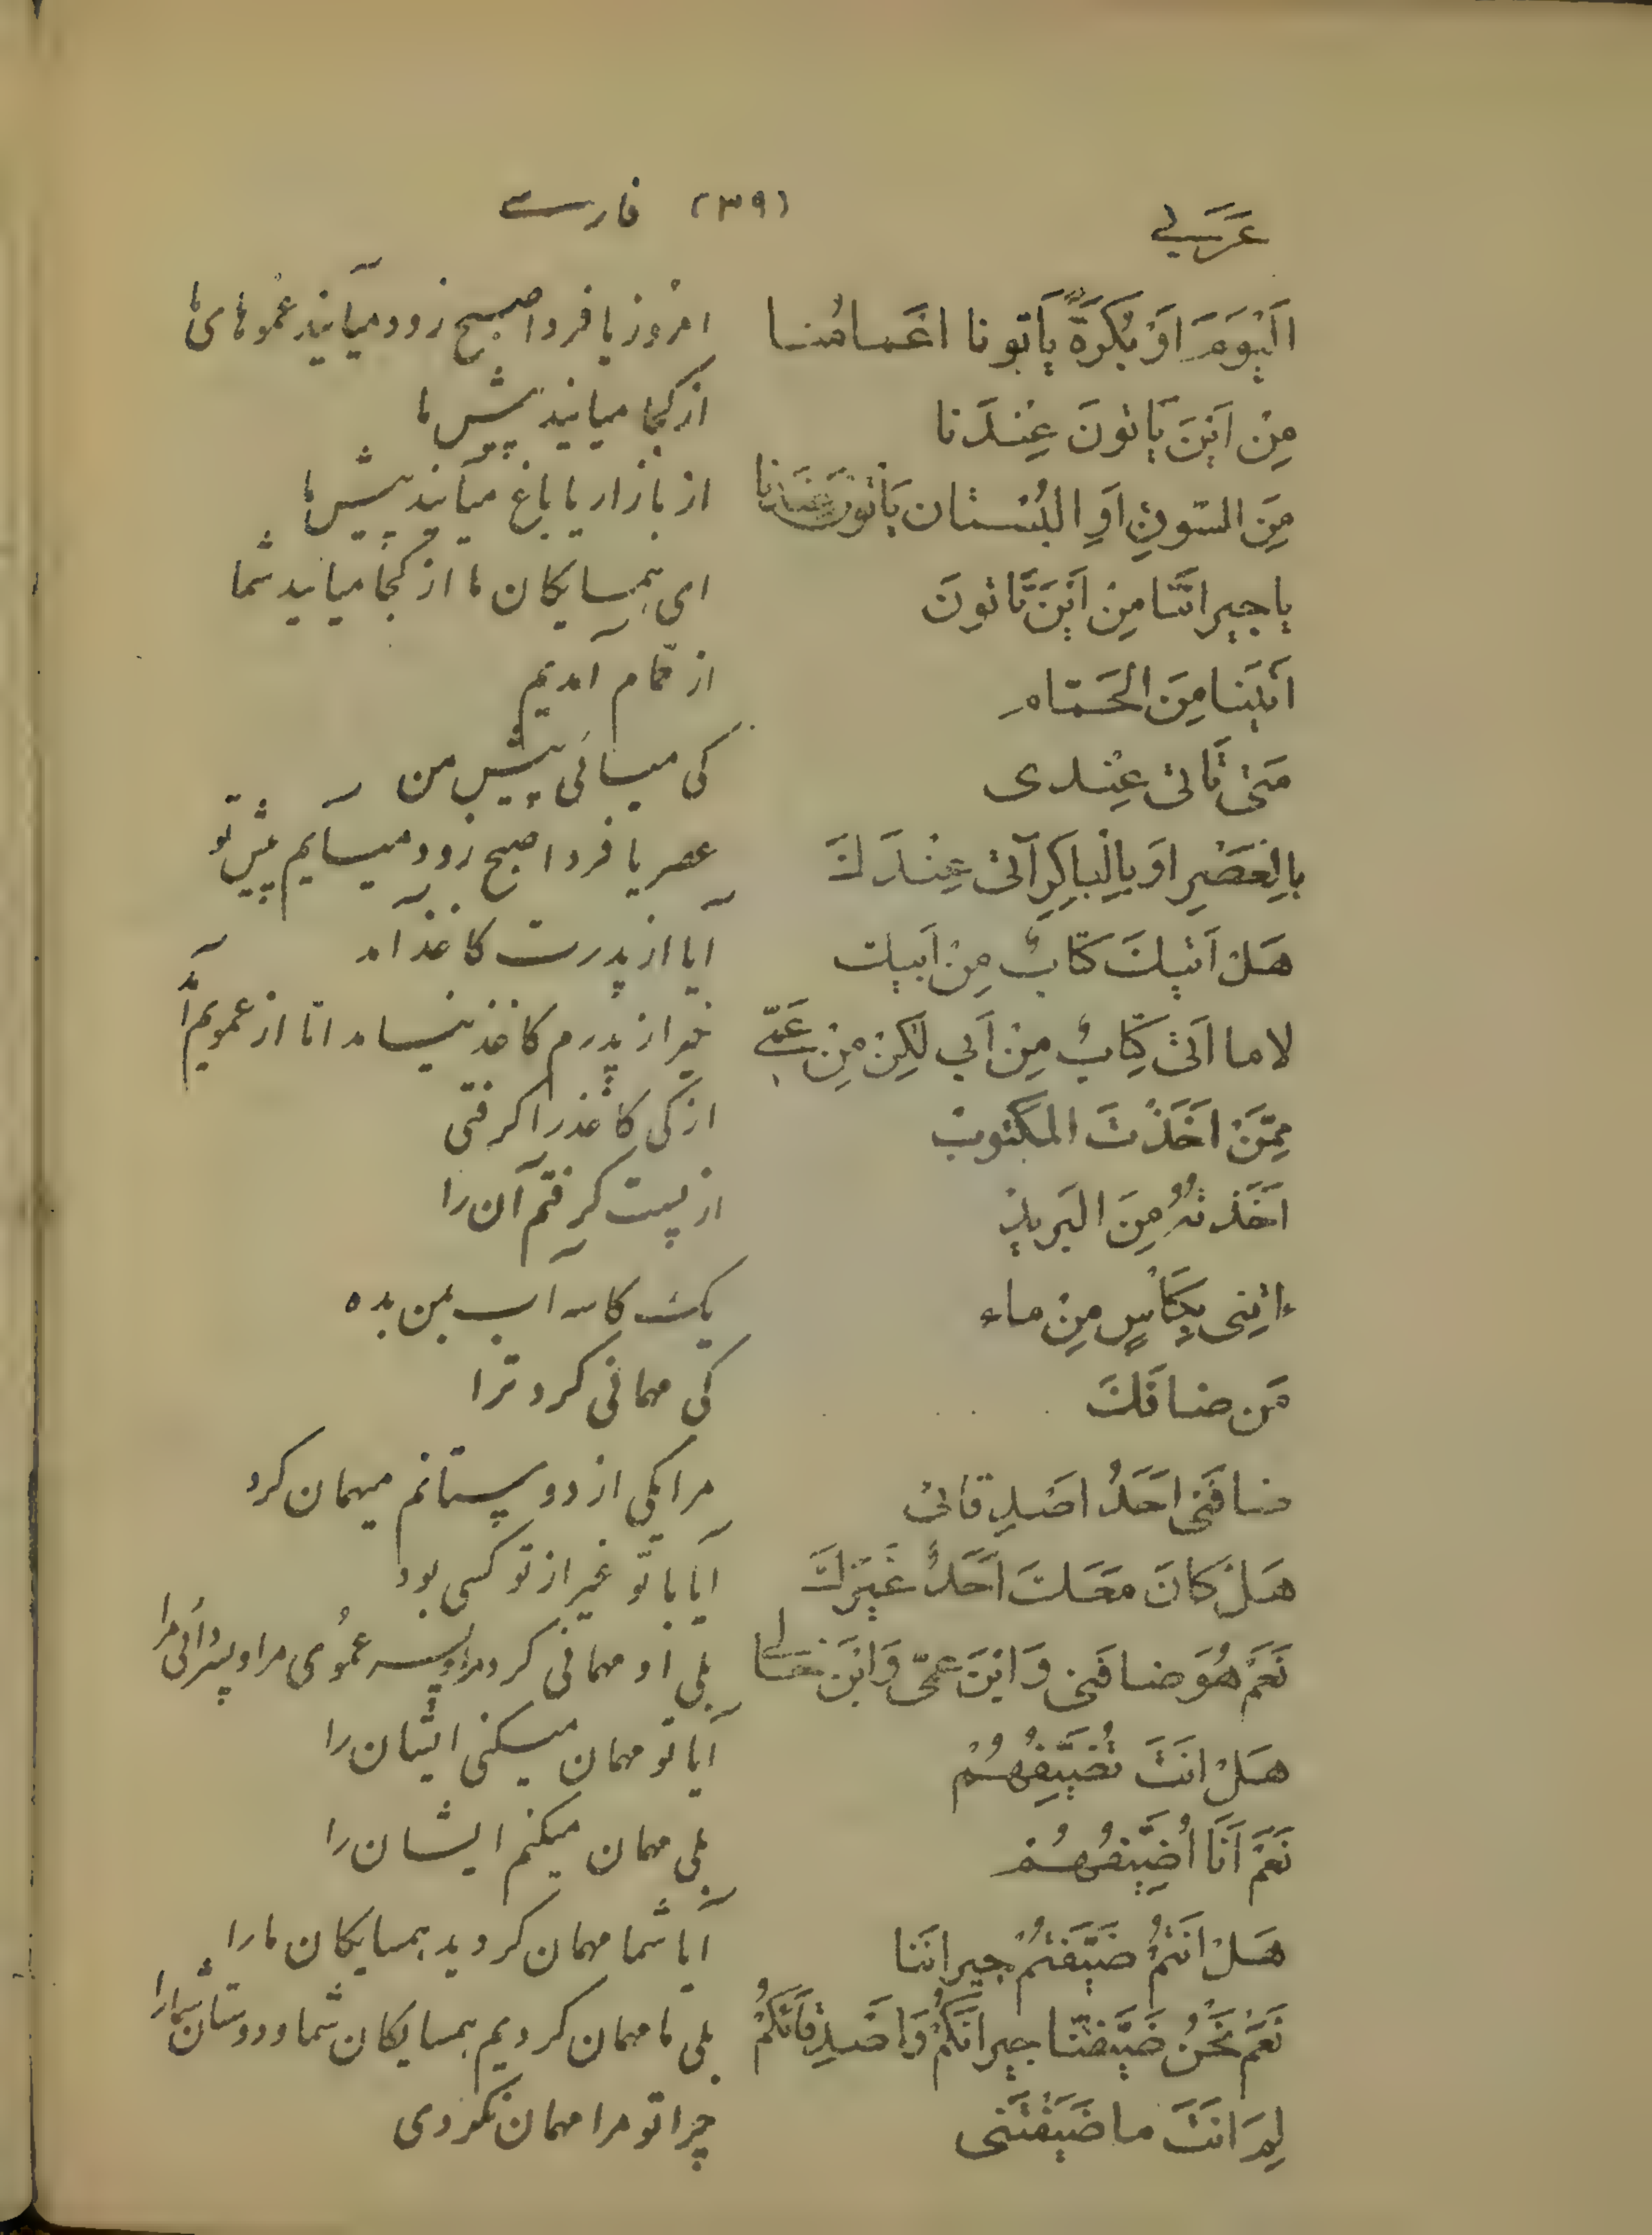 عَرَبِي (۳۹) فارسی
اَلْیَوْمَ اَوْ بُکْرَةً یَاْتونا اعْمامُنا امرُوز یا فردا صبح زود میآیند عمُوهای ما
مِنْ اَیْنَ یَاْتونَ عِنْدَنا از کجا میایند پیش ما
مِنَ السّوقِ اَوِ البُسْتان یَاْتونَ عِنْدَنا از بازار یا باغ میآیند پیش ما
یا جیرانَنا مِنْ اَیْنَ تَاْتونَ ای همسایکان ما از کجا میایید شما
اَتَیْنا مِنَ الحَمّام از حمام آمدیم
مَتیٰ تَاْتی عِنْدی کی میائی پیش من
بِالْعَصْرِ اَوْ بِالْباکِرِ آتی عِنْدَكَ عصر یا فردا صبح زود میآیم پیش تو
هَلْ اَتٰیكَ کِتابٌ مِنْ اَبیك آیا از پدرت کاغذ آمد
لا ما اَتیٰ کِتابٌ مِنْ اَبی لٰکِنْ مِنْ عَمّی خیر از پدرم کاغذ نیامد امّا از عمویم آمد
مِمَّنْ اَخَذْتَ المَکْتوبْ از کی کاغذ را کرفتی
اَخَذتُهُ مِنَ البَریدِ از پست کرفتم آن را
اِئتِنی بِکَاْسٍ مِنْ ماء یک کاسه آب بمن بده
مَن ضافَكَ کی مهمانی کرد ترا
ضافَنی اَحَدُ اَصْدِقائی مرا یکی از دوستانم میهمان کرد
هَلْ کانَ مَعَكَ اَحَدٌ غَیْرُكَ آیا با تو غیر از تو کسی بود
نَعَمْ هُوَ ضافَنی وَابْنَ عَمّی وَابْنَ خالی بلی او مهمانی کرد مرا و پسر عمُوی مرا و پسر دائی مرا
هَلْ اَنْتَ تُضَیِّفُهُمْ آیا تو مهمان میکنی ایشان را
نَعَمْ اَنَا اُضَیِّفُهُمْ بلی مهمان میکنم ایشان را
هَلْ اَنْتُمْ ضَیَّفْتُمْ جیرانَنا آیا شما مهمان کردید همسایکان ما را
نَعَمْ نَحْنُ ضَیَّفْنا جیرانَکُمْ وَاَصْدِقائَکُمْ بلی ما مهمان کردیم همسایکان شما و دوستان شما را
لِمَ اَنْتَ ما ضَیَّفْتَنی چرا تو مرا مهمان نکردی